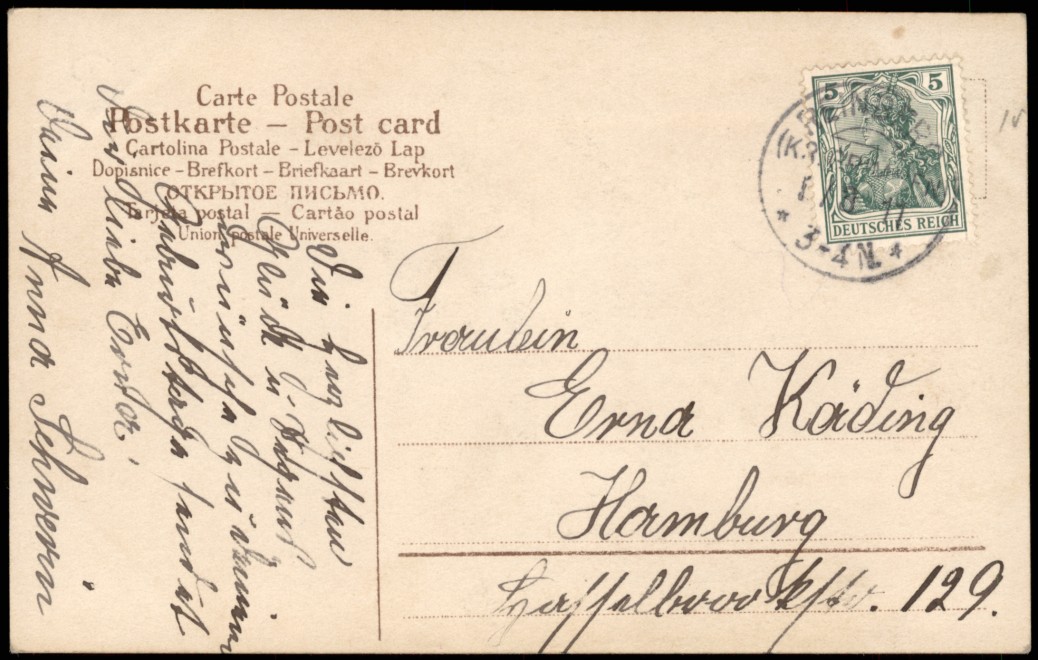 Carte Postale
Postkarte – Post card
Cartolina Postale – Levelező Lap
Dopisnice – Brefkort – Briefkaart – Brevkort
ОТКРЫТОЕ ПИСЬМО.
Tarjeta postal – Cartão postal
Union postale Universelle.
5 5
DEUTSCHES REICH
3-4 N.
Fräulein
Erna Käding
Hamburg
Hasselbrookstr. 129.
Die herzlichsten
Glück u.
wünsche zu deinem
Geburtstage sendet
Dir liebe Erna,
Deine Anna Schwerin